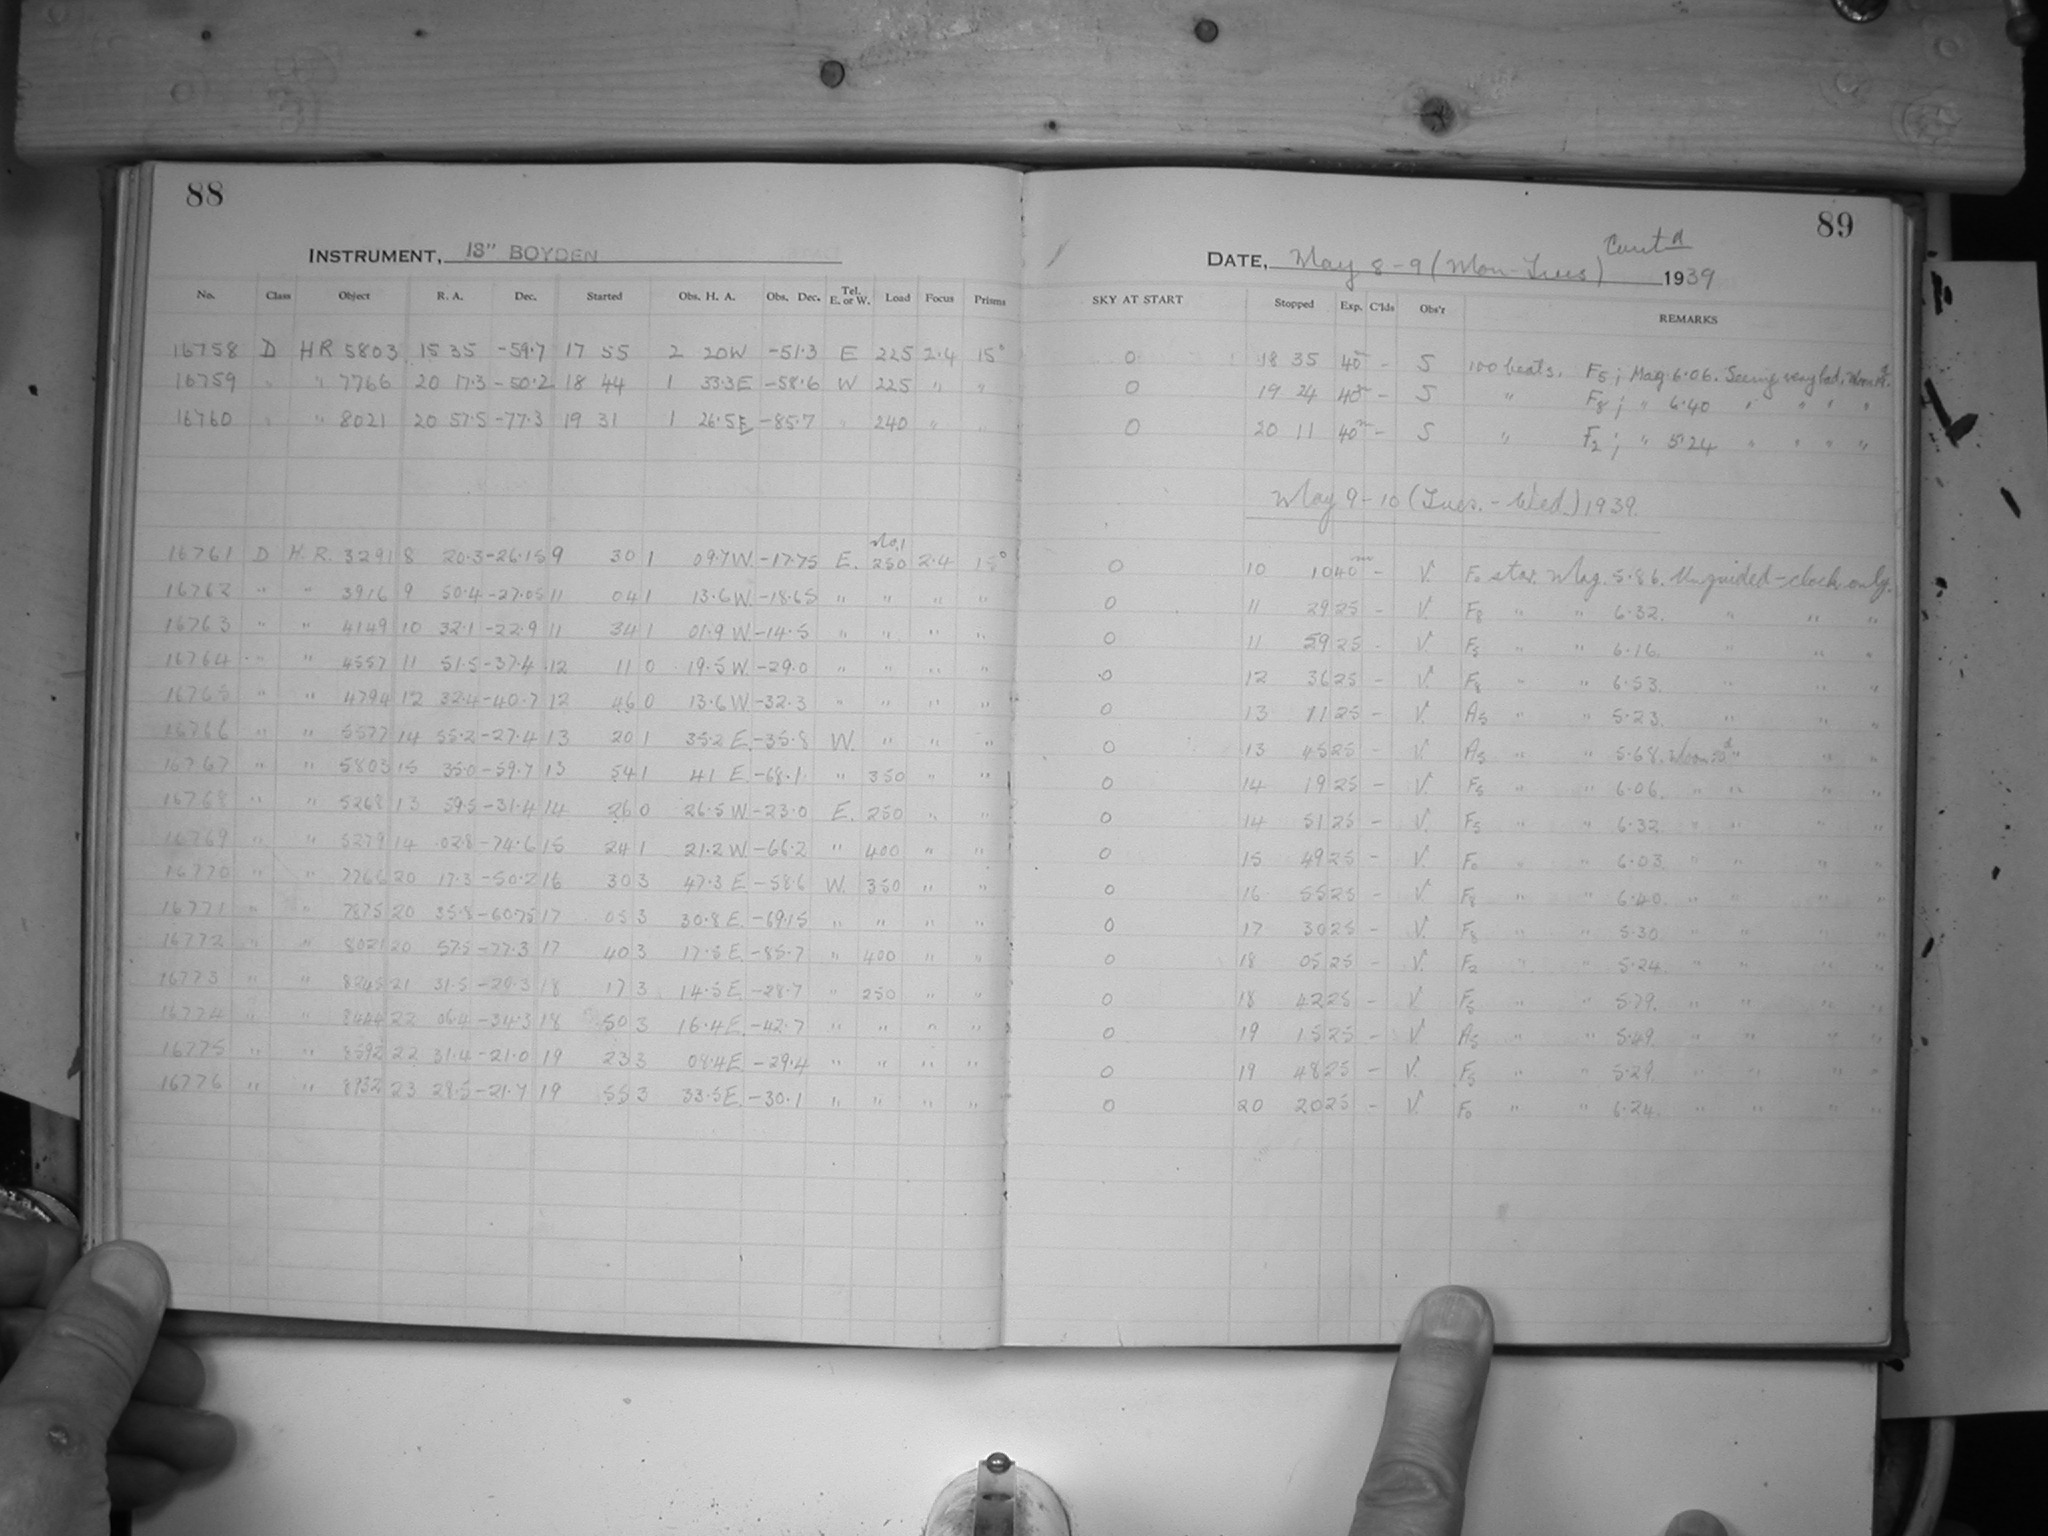 88
INSTRUMENT, 13" BOYDEN
No. Class Object R. A. Dec. Started Obs. H. A. Obs. Dec. Tel. E. or W. Load Focus Prisms
16758 D HR 5803 15 35 -59.7 17 55 2 20W -51.3 E 225 2.4 15°
16759 " " 7766 20 17.3 -50.2 18 44 1 33.3E -58.6 W 225 " "
16760 " " 8021 20 57.5 -77.3 19 31 1 26.5E -85.7 " 240 " "
No.1
16761 D H.R. 3291 8 20.3 -26.15 9 30 1 09.7W. -17.75 E. 250 2.4 15°
16762 " " 3916 9 50.4 -27.05 11 04 1 13.6W. -18.65 " " " "
16763 " " 4149 10 32.1 -22.9 11 34 1 01.9W. -14.5 " " " "
16764 " " 4557 11 51.5 -37.4 12 11 0 19.5W. -29.0 " " " "
16765 " " 4794 12 32.4 -40.7 12 46 0 13.6W. -32.3 " " " "
16766 " " 5577 14 55.2 -27.4 13 20 1 35.2E. -35.8 W. " " "
16767 " " 5803 15 35.0 -59.7 13 54 1 41 E. -68.1 " 350 " "
16768 " " 5268 13 59.5 -31.4 14 26 0 26.5W -23.0 E. 250 " "
16769 " " 5279 14 02.8 -74.6 15 24 1 21.2W. -66.2 " 400 " "
16770 " " 7766 20 17.3 -50.2 16 30 3 47.3E -58.6 W. 350 " "
16771 " " 7875 20 35.8 -60.75 17 05 3 30.8E. -69.15 " " " "
16772 " " 8021 20 57.5 -77.3 17 40 3 17.5E. -85.7 " 400 " "
16773 " " 8245 21 31.5 -20.3 18 17 3 14.5E. -28.7 " 250 " "
16774 " " 8444 22 06.4 -34.3 18 50 3 16.4E. -42.7 " " " "
16775 " " 8592 22 31.4 -21.0 19 23 3 08.4E. -29.4 " " " "
16776 " " 8932 23 28.5 -21.7 19 55 3 33.5E. -30.1 " " " "
89
DATE, May 8-9 (Mon-Tues) Cont'd 1939
SKY AT START Stopped Exp. C'lds Obs'r REMARKS
0 18 35 40m - S 100 beats. F5; Mag. 6.06. Seeing very bad.
0 19 24 40m - S " F8; " 6.40 " " " "
0 20 11 40m - S " F2; " 5.24 " " " "
May 9-10 (Tues. - Wed) 1939.
0 10 10 40m - V. F0 star. Mag. 5.86. Unguided - clock only.
0 11 29 25 - V. F8 " " 6.32. " " "
0 11 59 25 - V. F5 " " 6.16. " " "
0 12 36 25 - V. F8 " " 6.53. " " "
0 13 11 25 - V. A5 " " 5.23. " " "
0 13 45 25 - V. A5 " " 5.68. " "
0 14 19 25 - V. F5 " " 6.06. " " " "
0 14 51 25 - V. F5 " " 6.32 " " " "
0 15 49 25 - V. F0 " " 6.03. " " " "
0 16 55 25 - V. F8 " " 6.40. " " " "
0 17 30 25 - V. F8 " " 5.30 " " " "
0 18 05 25 - V. F2 " " 5.24. " " " "
0 18 42 25 - V. F5 " " 5.79. " " " "
0 19 15 25 - V. A5 " " 5.49. " " " "
0 19 48 25 - V. F5 " " 5.29. " " " "
0 20 20 25 - V. F0 " " 6.24. " " " "